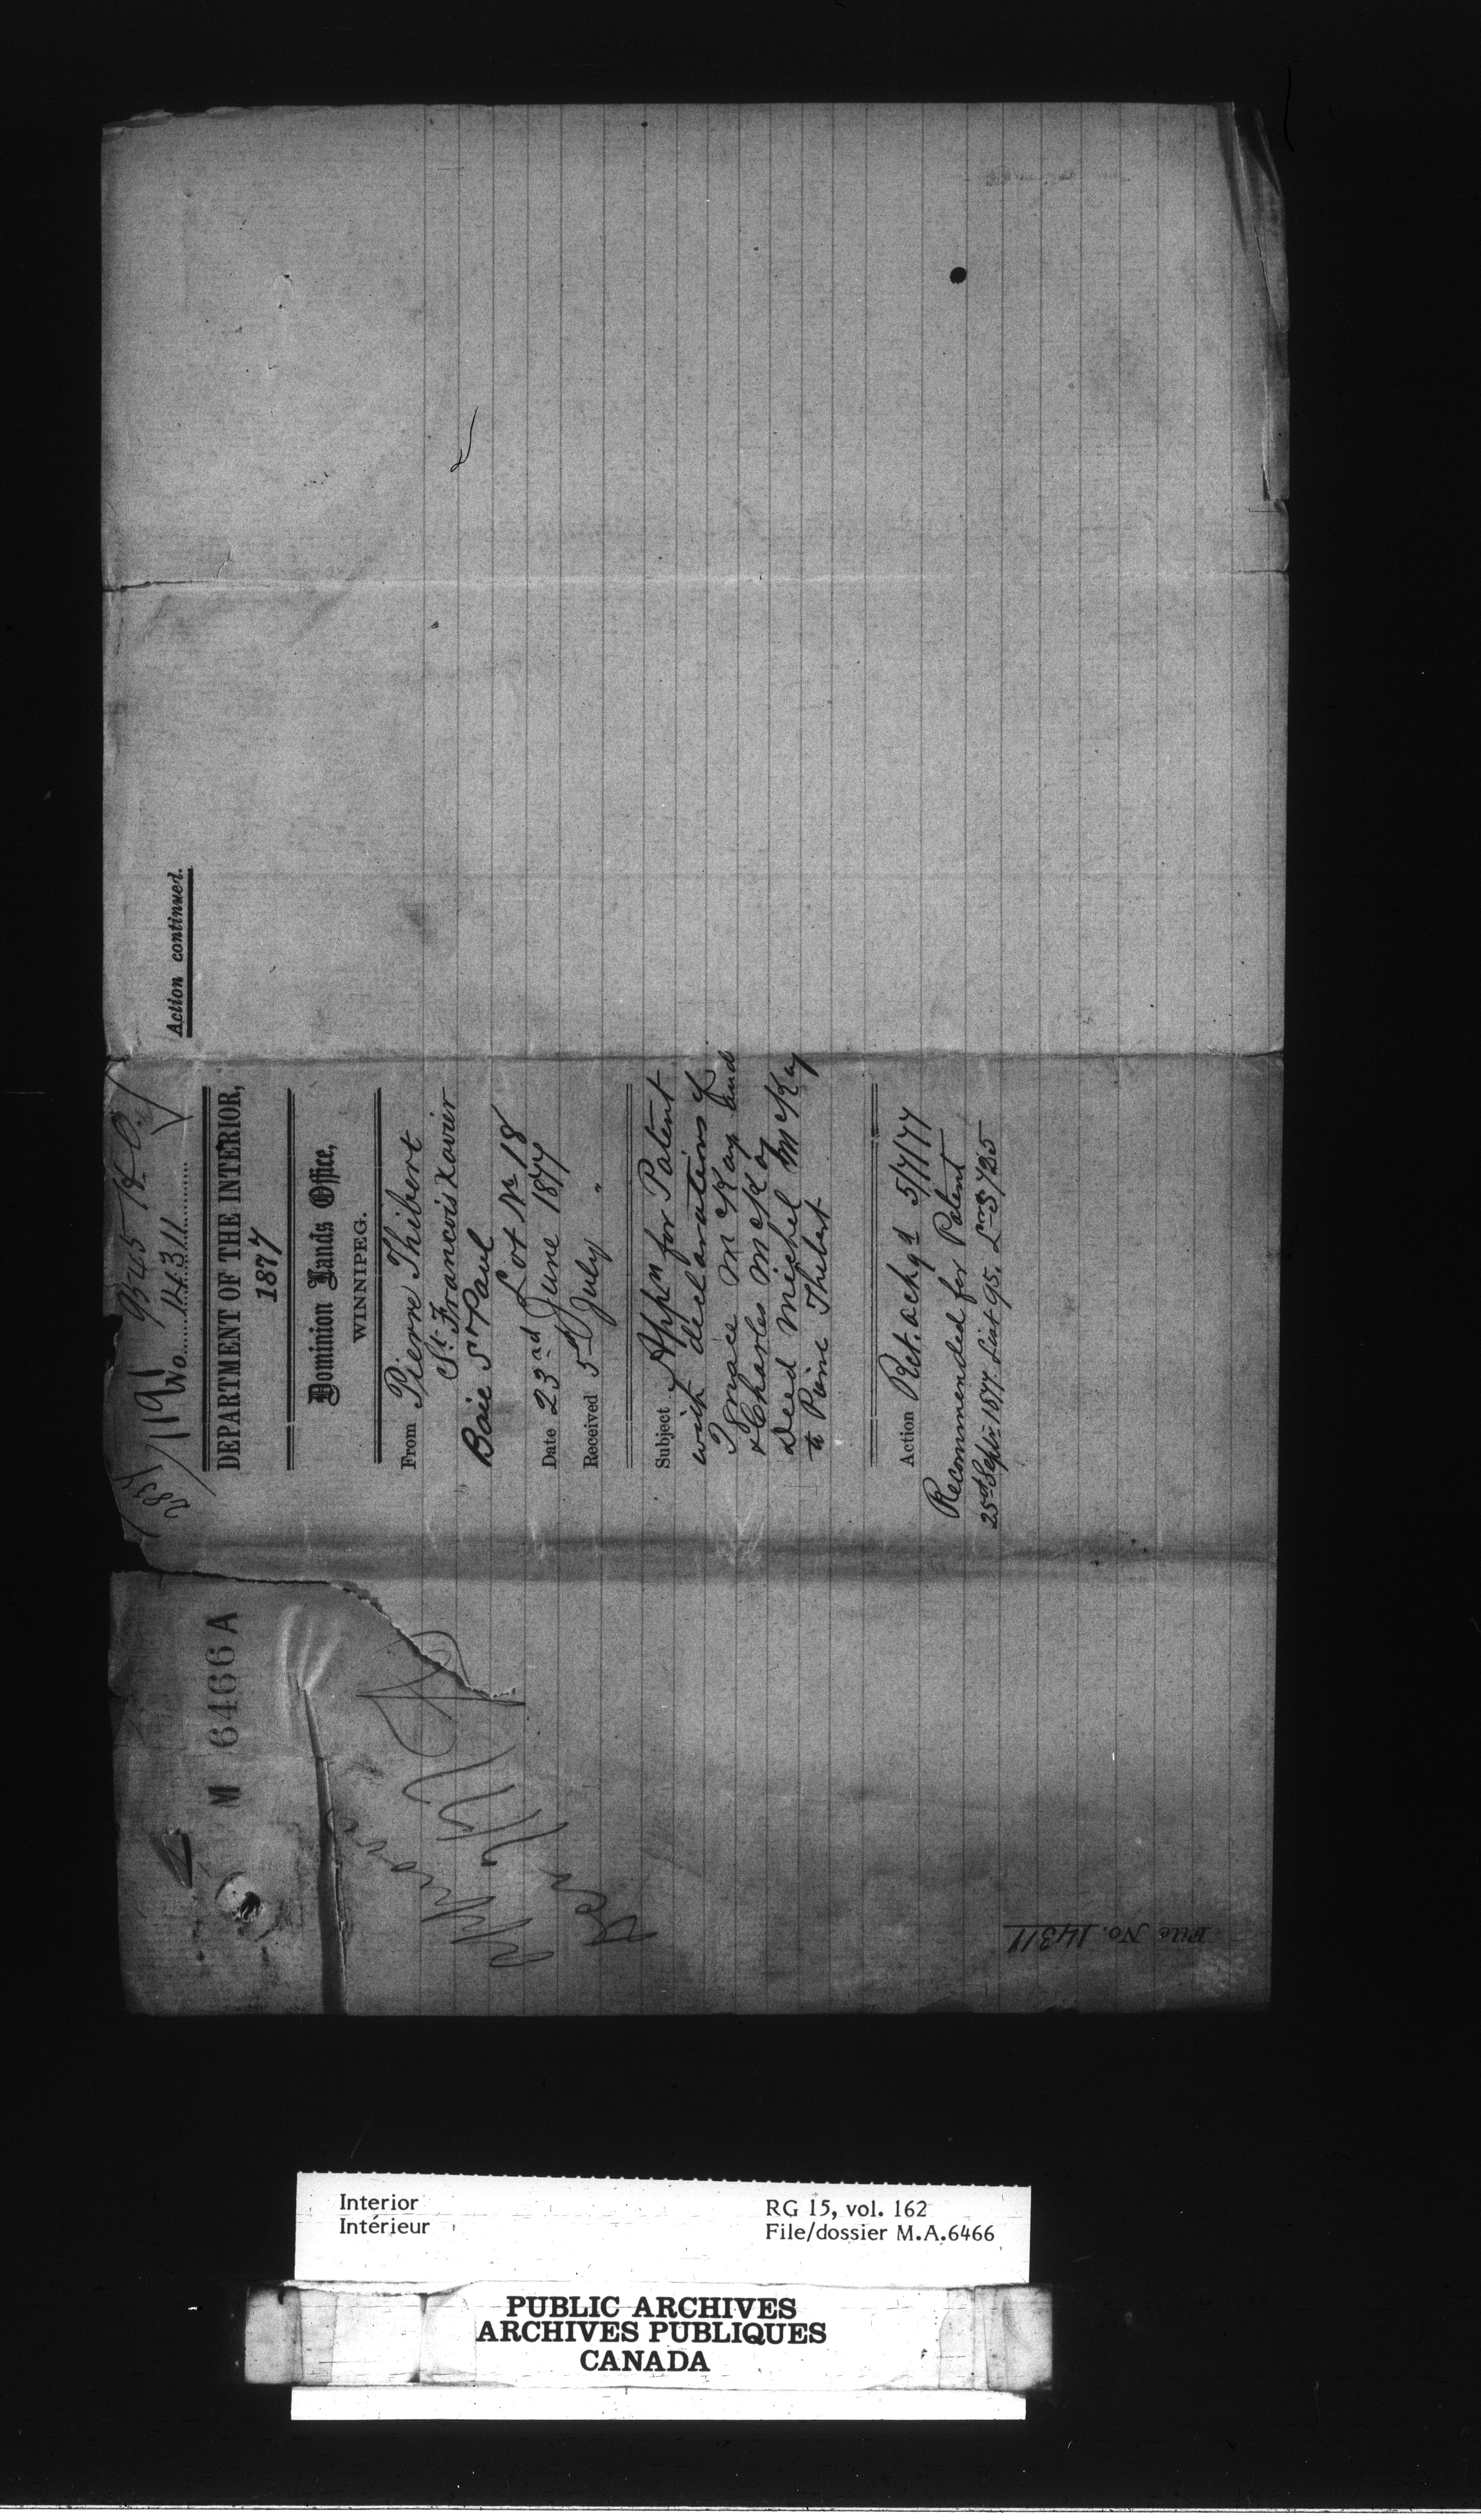 9545 H.O.
287/1191
No. 14311
DEPARTMENT OF THE INTERIOR,
1877
Dominion Lands Office,
WINNIPEG.
From Pierre Thibert
St. Francois Xavier
Baie St Paul Lot No 18
Date 23rd June 1877
Received 5th July "
Subject Appn for Patent
with declarations of
Ignace McKay and
& Charles McKay
Deed Michel McKay
to Pierre Thibert
Action Ret. ackgd 5/7/77
Recommended for Patent
25th Septr 1877. List 95.
Action continued.
M 6466 A
File No. 14311
Interior
Intérieur
RG 15, vol. 162
File/dossier M.A.6466
PUBLIC ARCHIVES
ARCHIVES PUBLIQUES
CANADA